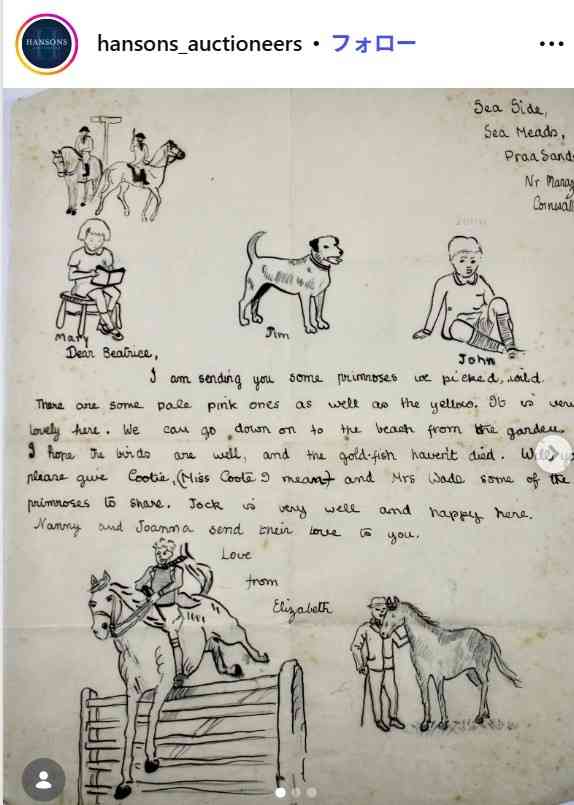 HANSONS
hansons_auctioneers • フォロー
Sea Side,
Sea Meads,
Praa Sands
Nr Maraz
Cornwall
Mary
Tim
John
Dear Beatrice,
I am sending you some primroses we picked, wild.
There are some pale pink ones as well as the yellow. It is very
lovely here. We can go down on to the beach from the garden.
I hope the birds are well, and the gold-fish haven't died. Will y
please give Cootie, (Miss Coote I mean) and Mrs Wade some of the
primroses to share. Jock is very well and happy here.
Nanny and Joanna send their love to you.
Love
from
Elizabeth